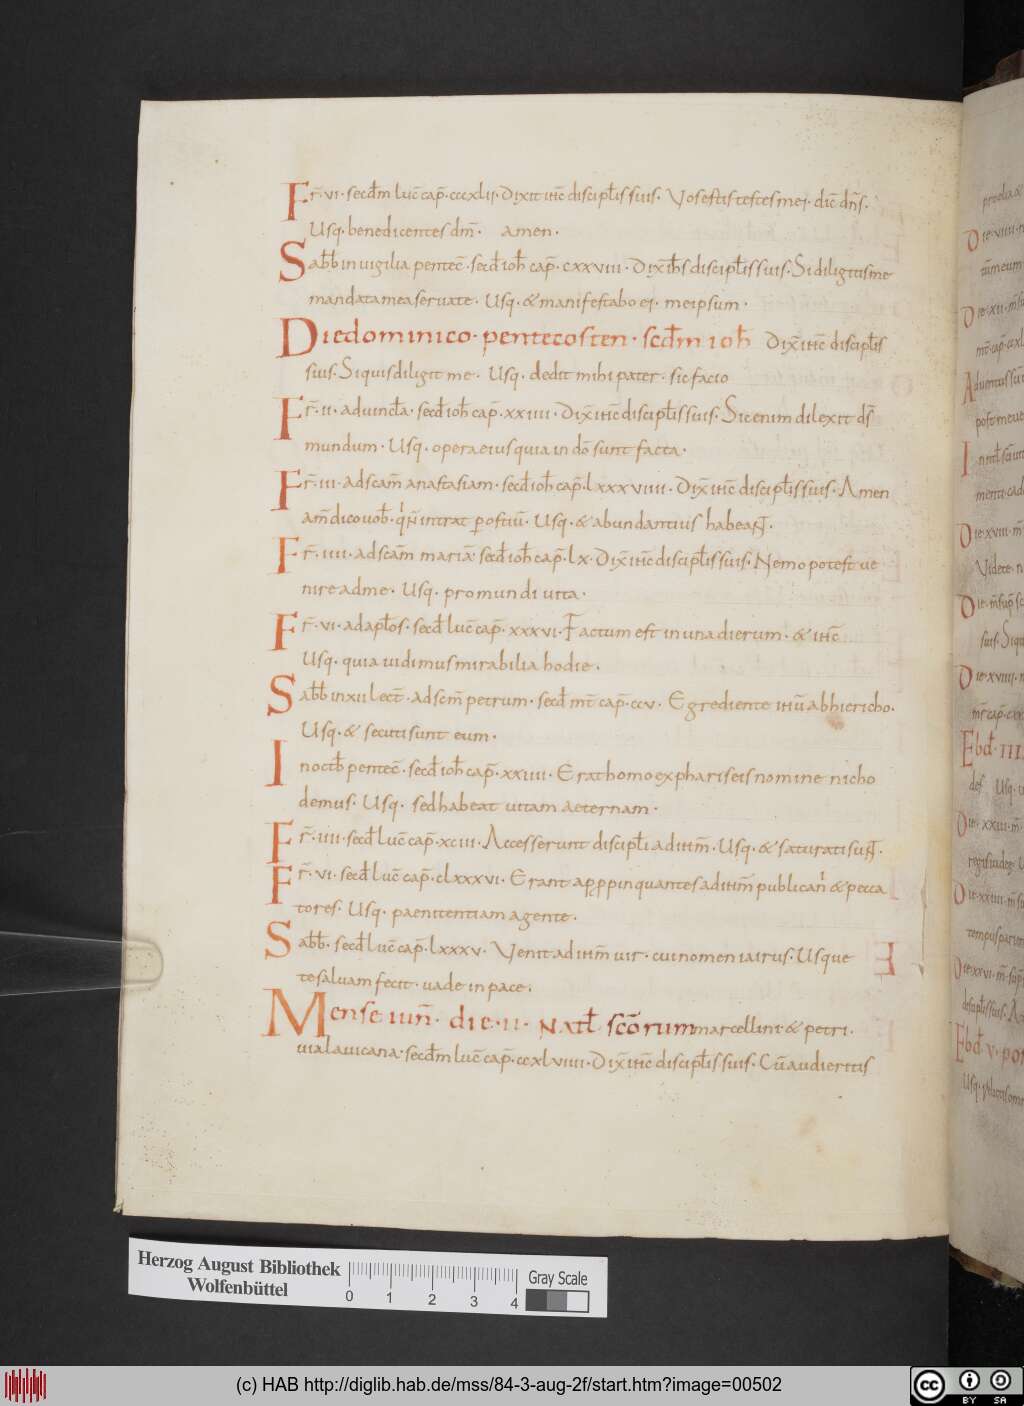 Fr̄· vi · secd̄m luc̄ cap̄ · cccxlii · Dixit ih̄c discipl̄is suis · Vos estis testes mei · dic̄ dn̄s ·
Usq · benedicentes dm̄ · amen ·
Sabb̄ in uigilia pentec̄ · secd̄ ioh̄ cap̄ · cxxviii · Dix̄ ih̄s discipl̄is suis · Si diligitis me
mandata mea seruate · Usq · & manifestabo ei · meipsum ·
Die dominico · pentecosten · scd̄m ioh̄ Dix̄ ih̄c discipl̄is
suis · Siquis diligit me · Usq · dedit mihi pater · sic facio
Fr̄ · ii · ad uincl̄a · secd̄ ioh̄ cap̄ · xxiiii · Dix̄ ih̄c discipl̄is suis · Sic enim dilexit ds̄
mundum · Usq · opera eius quia in dō sunt facta ·
Fr̄ · iii · ad scam̄ anastasiam · secd̄ ioh̄ cap̄ · lxxxviiii · Dix̄ ih̄c discipl̄is suis · Amen
am̄ dico uob̄ · q n̄ intrat p ostiū · Usq · & abundantius habeant ·
Fr̄ · iiii · ad scam̄ mariā · secd̄ ioh̄ cap̄ · lx · Dix̄ ih̄c discipl̄is suis · Nemo potest ue
nire ad me · Usq · pro mundi uita ·
Fr̄ · vi · ad apl̄os · secd̄ luc̄ cap̄ · xxxvi · Factum est in una dierum · & ih̄c
Usq · quia uidimus mirabilia hodie ·
Sabb̄ in xii lect̄ · ad scm̄ petrum · secd̄ mt̄ cap̄ · ccv · Egrediente ih̄u ab hiericho ·
Usq · & secuti sunt eum ·
In octb̄ pentec̄ · secd̄ ioh̄ cap̄ · xxiiii · Erat homo ex phariseis nomine nicho
demus · Usq · sed habeat uitam aeternam ·
Fr̄ · iiii · secd̄ luc̄ cap̄ · xciii · Accesserunt discipl̄i ad ih̄m · Usq · & saturati sunt ·
Fr̄ · vi · secd̄ luc̄ cap̄ · clxxxvi · Erant appropinquantes ad ih̄m publicani & pecca
tores · Usq · paenitentiam agente ·
Sabb̄ · secd̄ luc̄ cap̄ · lxxxv · Venit ad ih̄m uir · cui nomen iairus · Usque
te saluam fecit · uade in pace ·
Mense iun̄ · die · ii · natl̄ scōrum marcellini & petri ·
uia lauicana · secd̄m luc̄ cap̄ · ccxlviiii · Dix̄ ih̄c discipl̄is suis · Cū audieritis
Herzog August Bibliothek
Wolfenbüttel
0 1 2 3 4
Gray Scale
(c) HAB http://diglib.hab.de/mss/84-3-aug-2f/start.htm?image=00502
cc BY SA